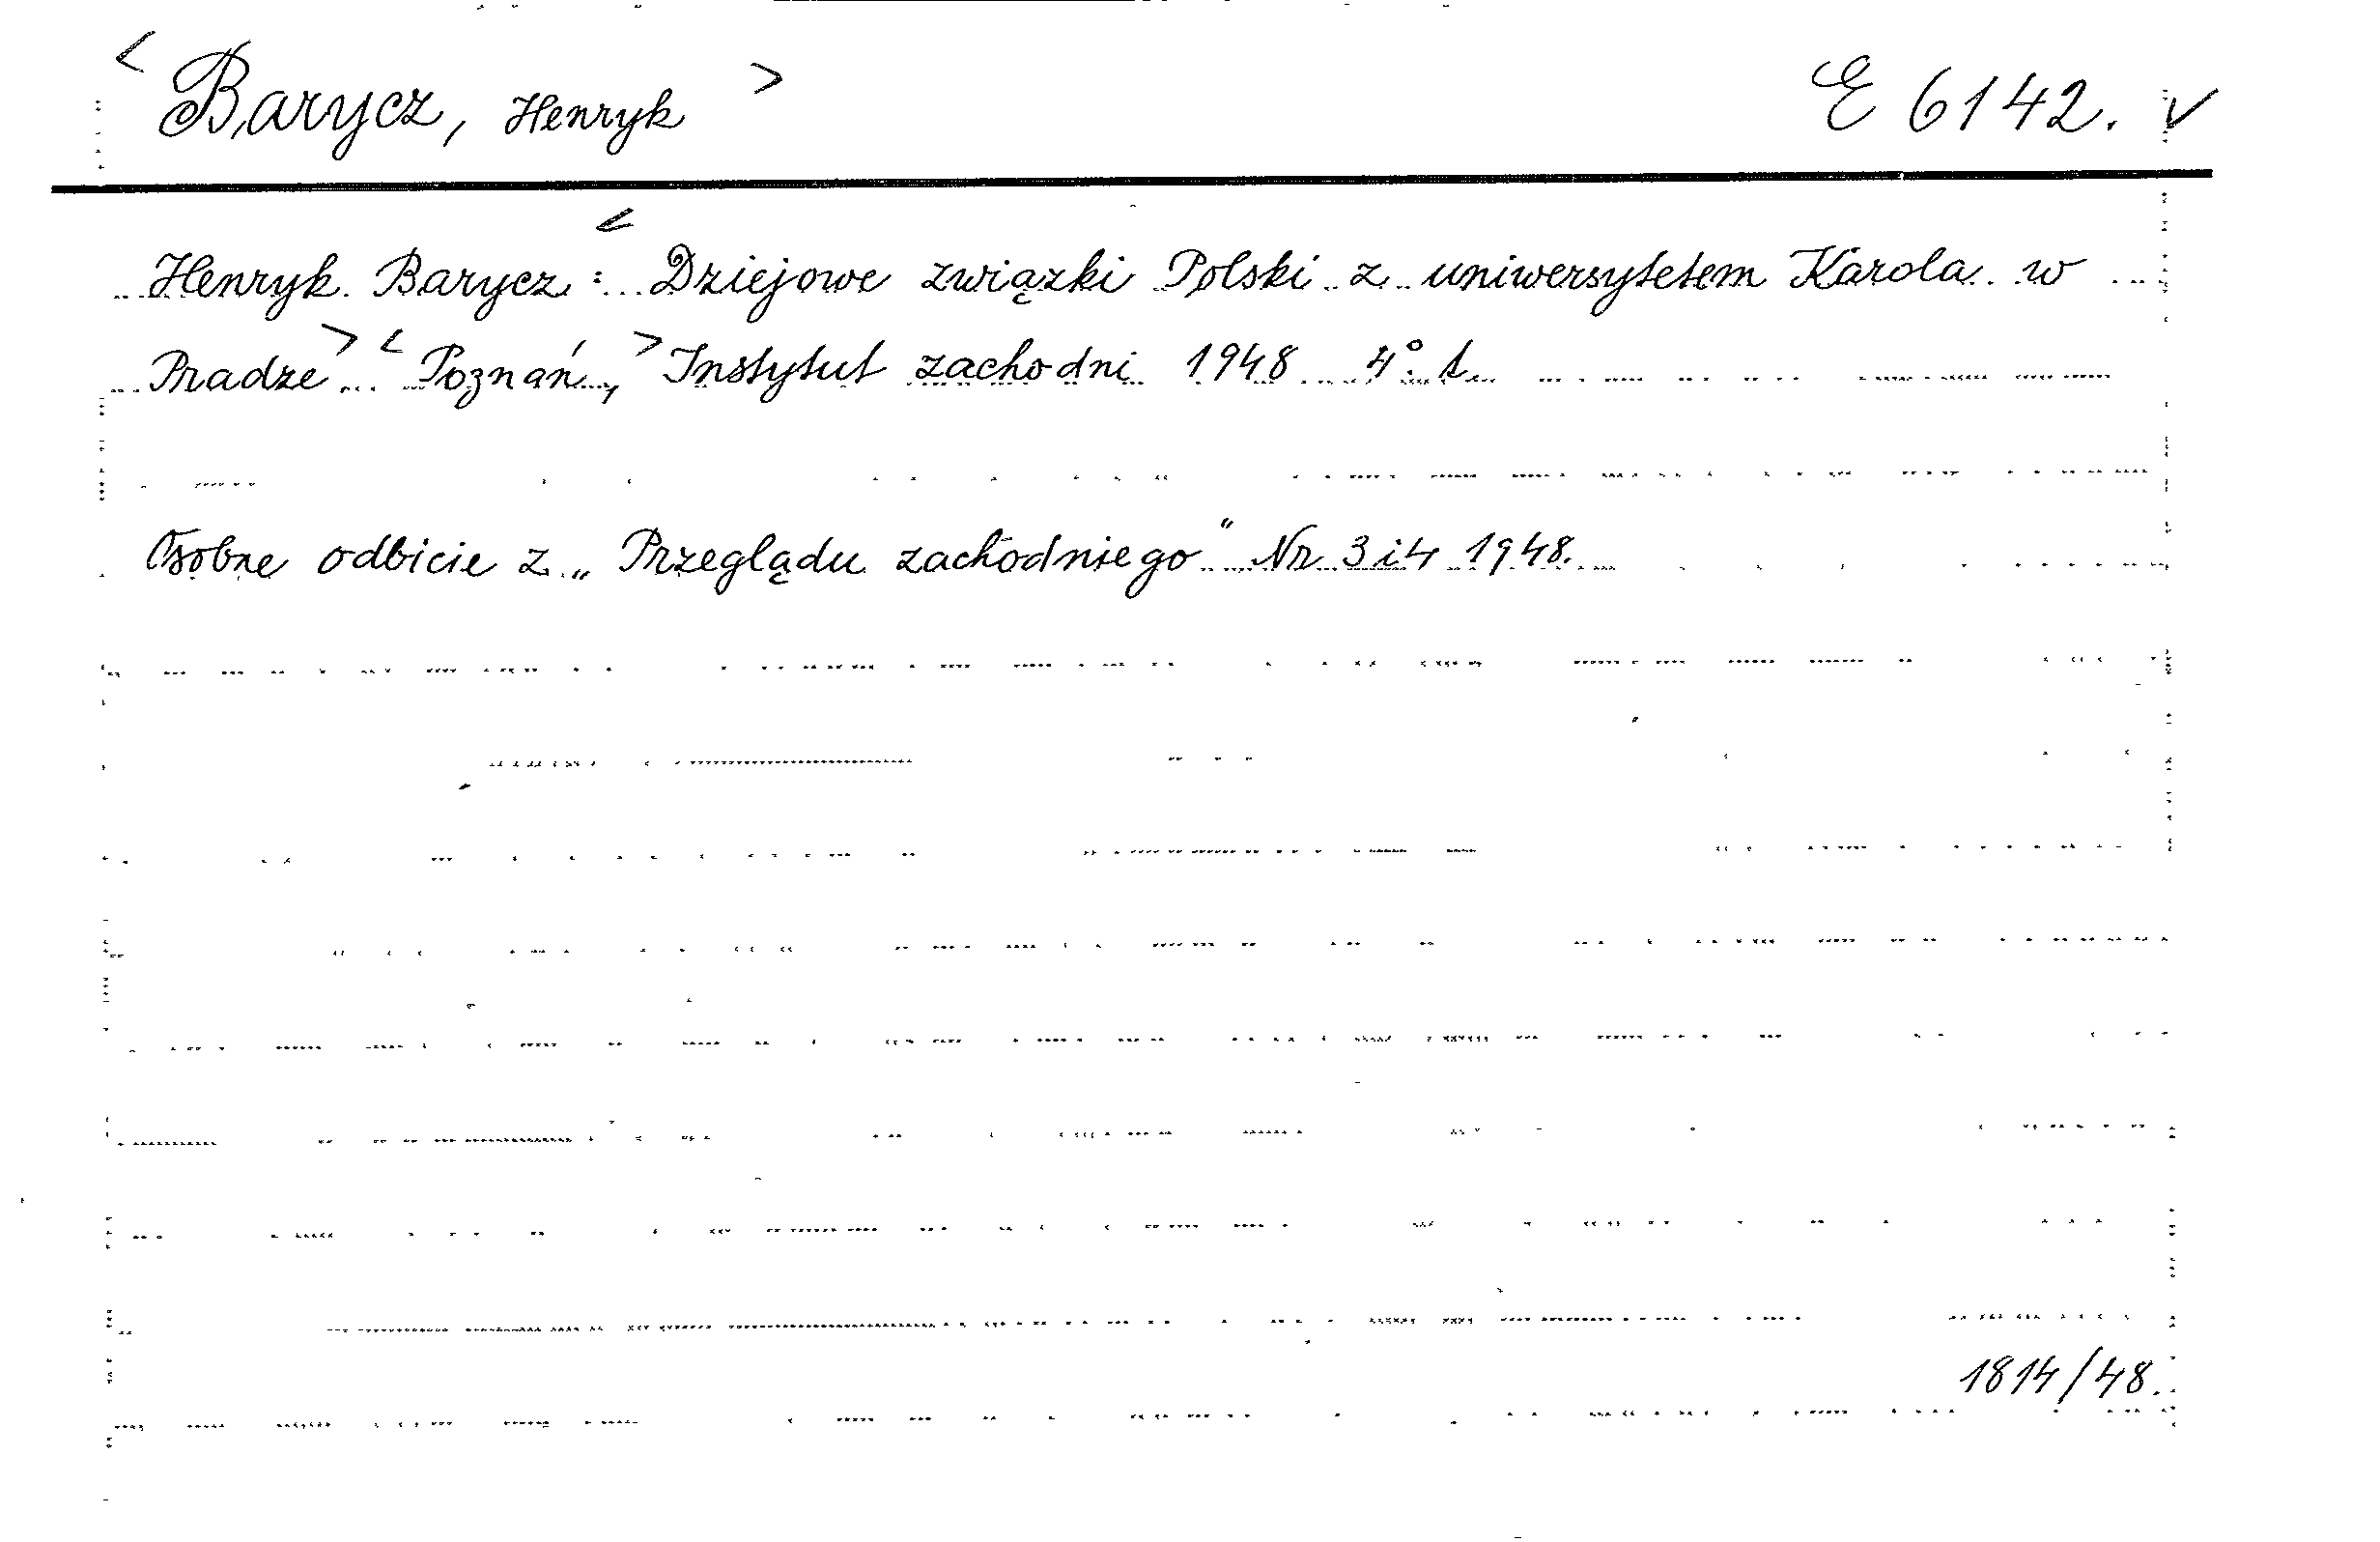 < Barycz, Henryk > E 6142. v
Henryk Barycz: < Dziejowe związki Polski z uniwersytetem Karola w
Pradze > < Poznań, > Instytut zachodni 1948 4° t.
Osobne odbicie z „Przeglądu zachodniego" Nr 3 i 4 1948.
1814/48.